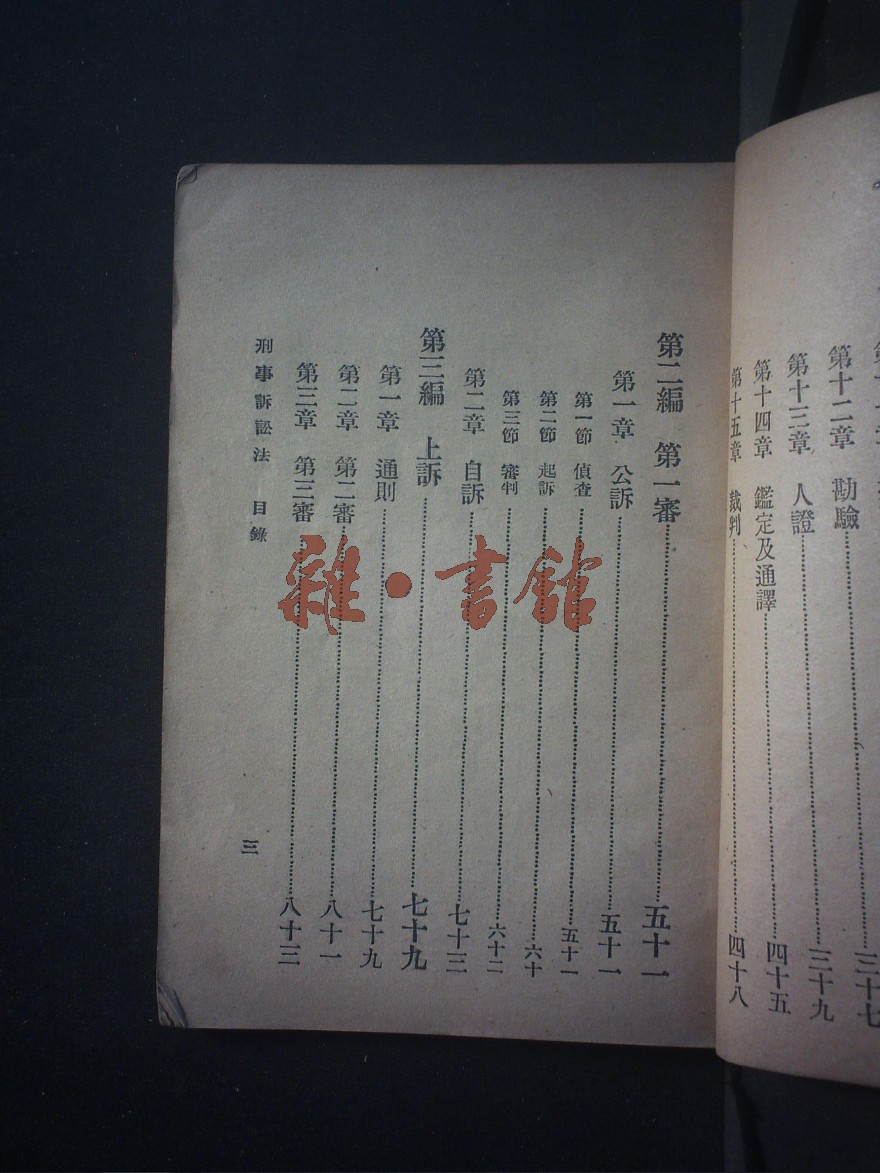 第十二章 勘驗 三十七
第十三章 人證 三十九
第十四章 鑑定及通譯 四十五
第十五章 裁判 四十八
第二編 第一審 五十一
第一章 公訴 五十一
第一節 偵查 五十一
第二節 起訴 六十
第三節 審判 六十二
第二章 自訴 七十三
第三編 上訴 七十九
第一章 通則 七十九
第二章 第二審 八十一
第三章 第三審 八十三
刑事訴訟法 目錄 三
雜·書館